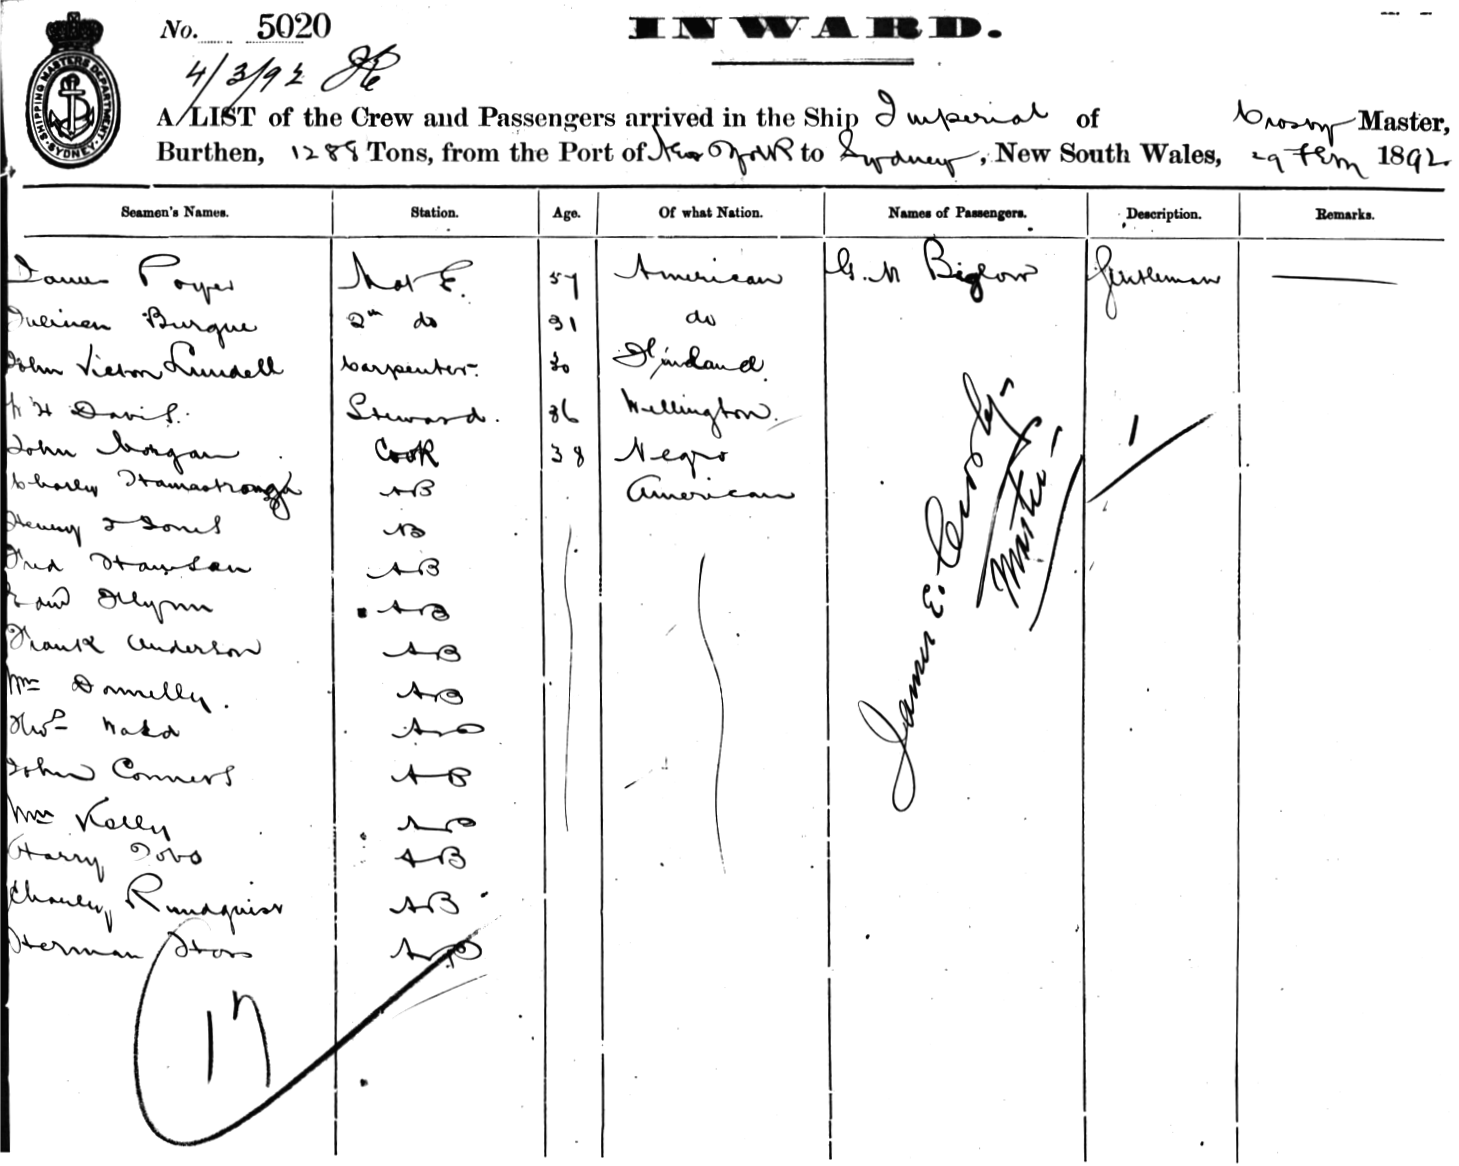 SHIPPING MASTERS DEPARTMENT
SYDNEY
No. 5020
INWARD.
4/3/92
A LIST of the Crew and Passengers arrived in the Ship Imperial of Crosby Master,
Burthen, 1288 Tons, from the Port of New York to Sydney, New South Wales, 29 Feby 1892
Seamen's Names. Station. Age. Of what Nation. Names of Passengers. Description. Remarks.
James Mat E. 57 American G. M Biglow Gentleman
Burgue 2nd do 31 do
John Victor Lundell Carpenter. 30 Finland
H Davis. Steward. 36 Wellington
John Morgan Cook 38 Negro
Charley AB American
Henry J Jones AB
Fred Hansan AB
Edwd Flynn AB
Frank Anderson AB
Wm Donnelly. AB
Thos Ward AB
John Conners AB
Wm Kelly AB
Harry AB
Charley Rundquist AB
Herman AB
17
1
James E. Crosby
Master